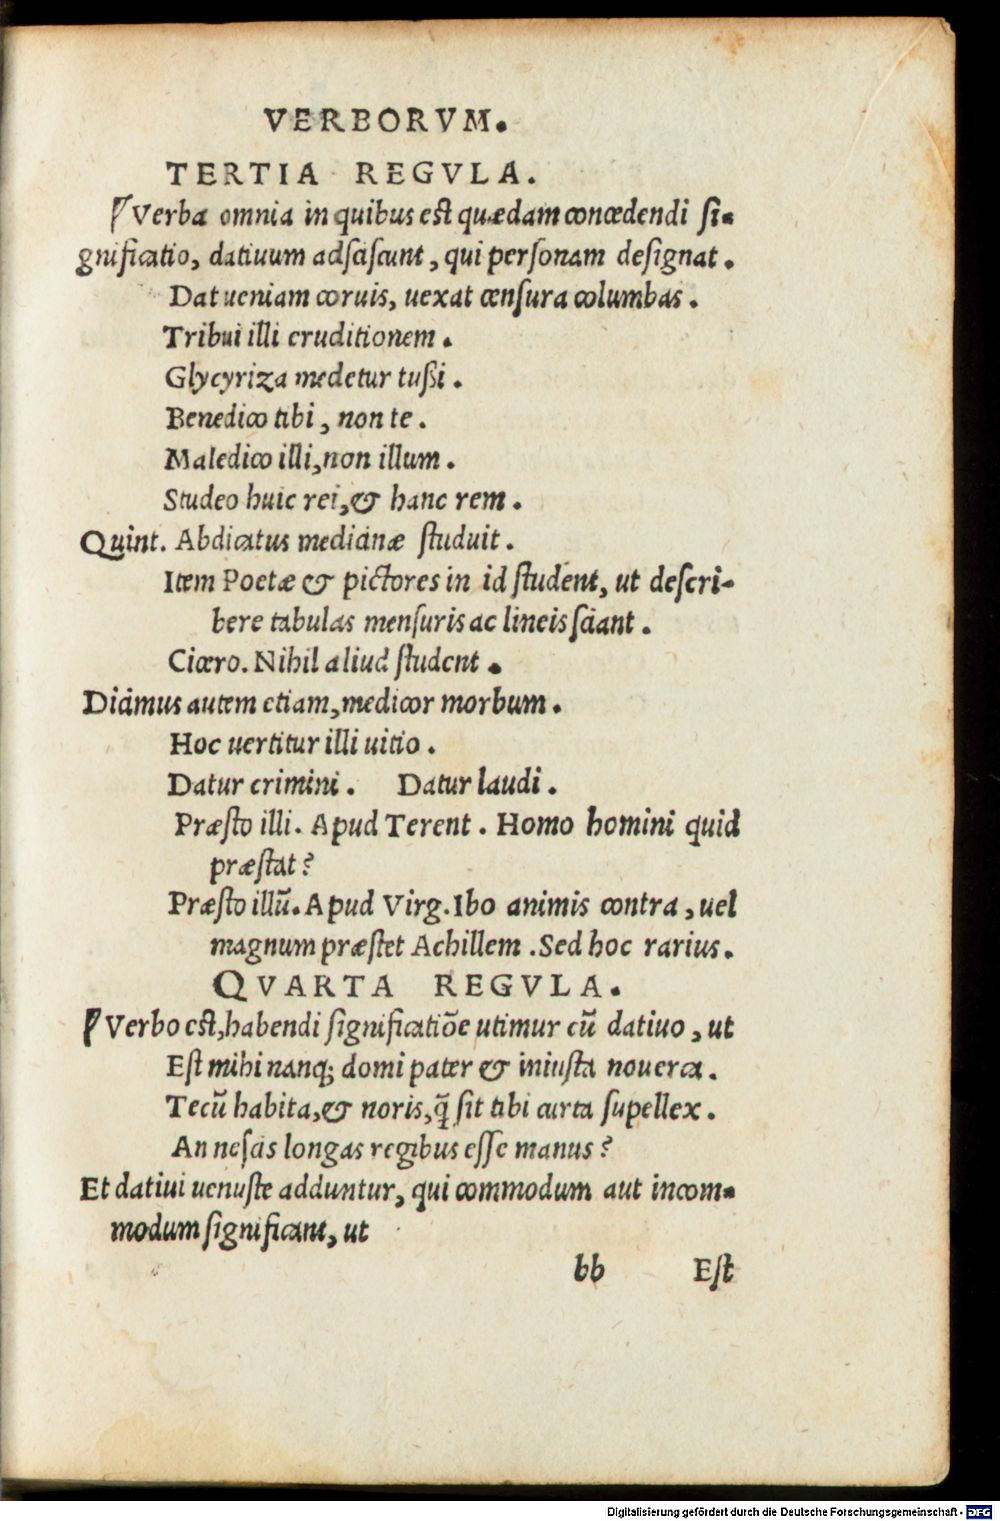 VERBORVM.
TERTIA REGVLA.
¶ Verba omnia in quibus est quædam concedendi si-
gnificatio, datiuum adsciscunt, qui personam designat.
Dat ueniam coruis, uexat censura columbas.
Tribui illi eruditionem.
Glycyriza medetur tussi.
Benedico tibi, non te.
Maledico illi, non illum.
Studeo huic rei, & hanc rem.
Quint. Abdicatus medicinæ studuit.
Item Poetæ & pictores in id student, ut descri-
bere tabulas mensuris ac lineis sciant.
Cicero. Nihil aliud student.
Dicimus autem etiam, medicor morbum.
Hoc uertitur illi uitio.
Datur crimini. Datur laudi.
Præsto illi. Apud Terent. Homo homini quid
præstat?
Præsto illũ. Apud Virg. Ibo animis contra, uel
magnum præstet Achillem. Sed hoc rarius.
QVARTA REGVLA.
¶ Verbo est, habendi significatiõe utimur cũ datiuo, ut
Est mihi nanq; domi pater & iniusta nouerca.
Tecũ habita, & noris, q̃ sit tibi curta supellex.
An nescis longas regibus esse manus?
Et datiui uenuste adduntur, qui commodum aut incom-
modum significant, ut
bb Est
Digitalisierung gefördert durch die Deutsche Forschungsgemeinschaft - DFG